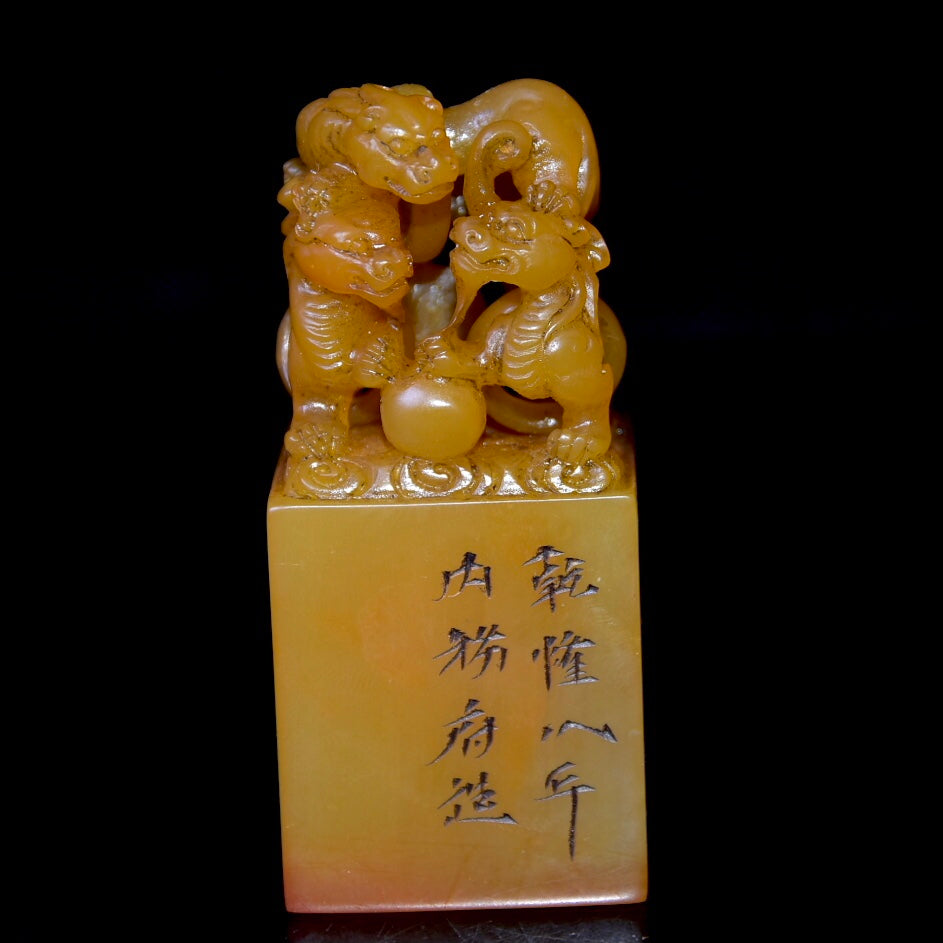 乾隆八年
内務府造